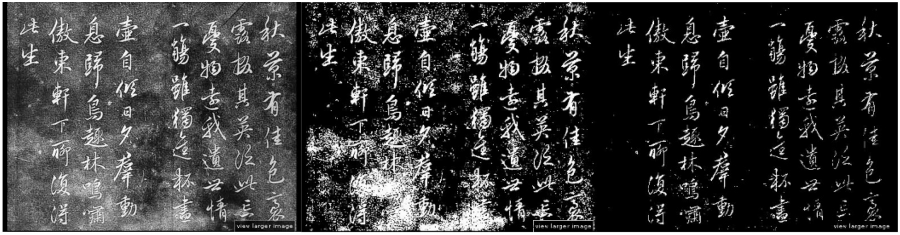 秋菊有佳色裛
露掇其英泛此忘
憂物遠我遺世情
一觴雖獨進杯盡
壺自傾日夕羣動
息歸鳥趨林鳴嘯
傲東軒下聊復得
此生
view larger image
秋菊有佳色裛
露掇其英泛此忘
憂物遠我遺世情
一觴雖獨進杯盡
壺自傾日夕羣動
息歸鳥趨林
傲東軒下聊復得
此生
view larger image
秋菊有佳色裛
露掇其英泛此忘
憂物遠我遺世情
一觴雖獨進杯盡
壺自傾日夕羣動
息歸鳥趨林鳴嘯
傲東軒下聊復得
此生
view larger image